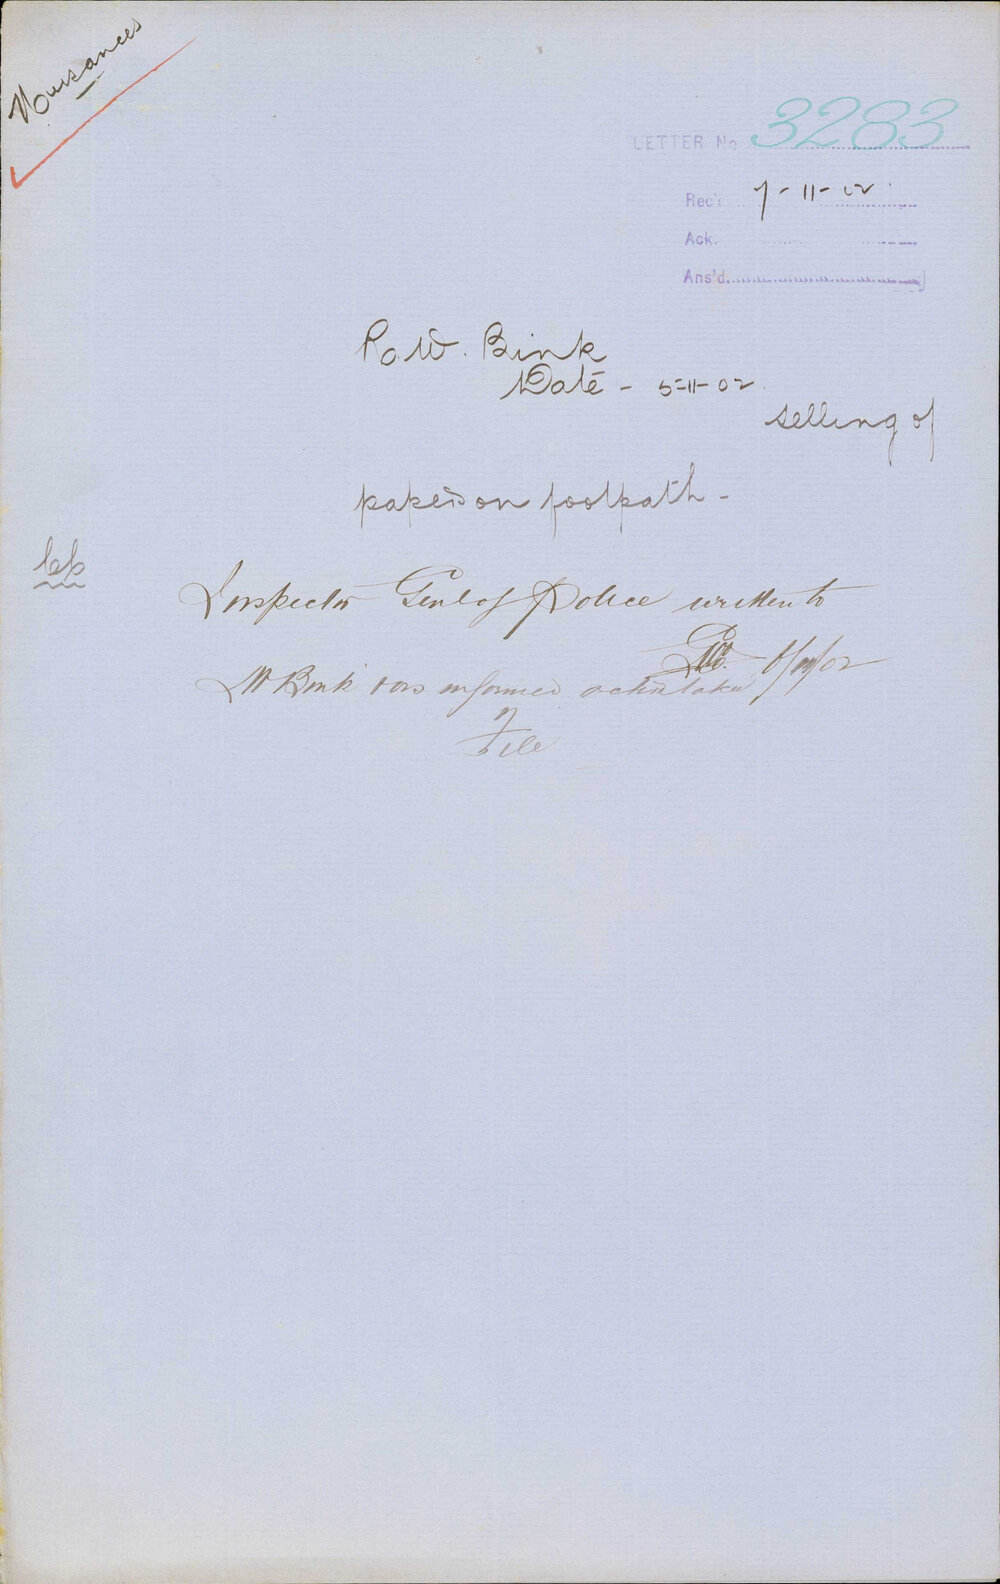 Nuisances
LETTER No 3283
Rec'd 7-11-02
Ack.
Ans'd.
R. W. Bink
Date - 5-11-02.
selling of
papers on footpath -
Inspector Genl of Police written to
8/11/02
Mr Bink was informed action taken
File